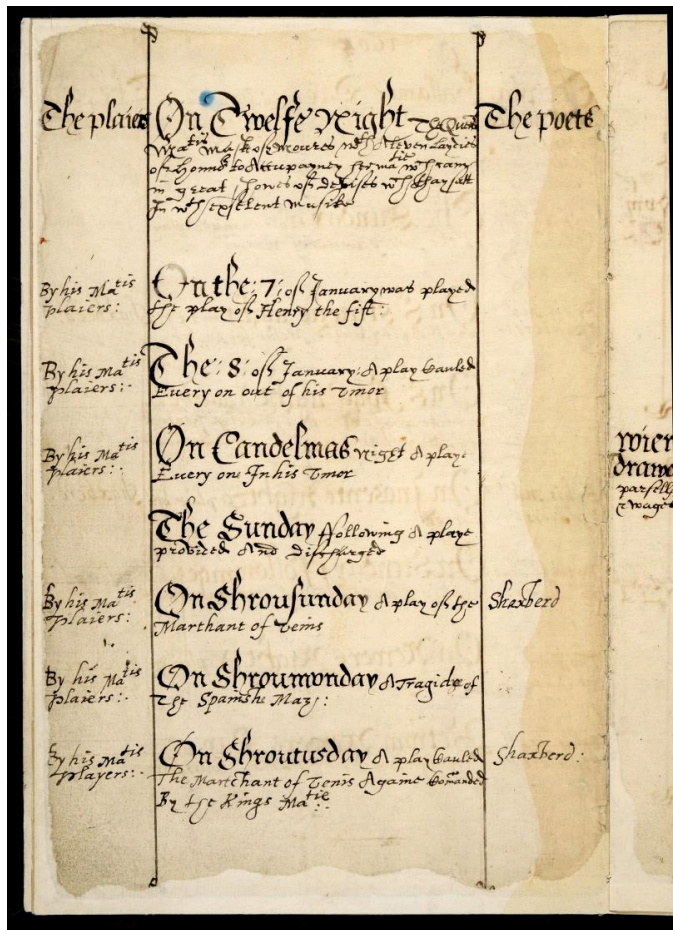 The plaiers On Twelfe Night The Quens The poets
Ma^tis Mask of Moures wth Aleven Laydies
of honnor to Accupayney her ma^tie wth cam
in great showes of devises wch thay satt
In wth exselent musike
By his Ma^tis
plaiers:
On the: 7: of January was played
the play of Henry the fift:
By his Ma^tis
plaiers:
The: 8: of January: A play Cauled
Every on out of his Umor
By his Ma^tis
plaiers:
On Candelmas night A playe
Every on In his Umor
The Sunday ffollowing A playe
provided And discharged
By his Ma^tis
plaiers:
On Shrousunday A play of the
Marthant of Venis
Shaxberd
By his Ma^tis
plaiers:
On Shroumonday A Tragidye of
The Spanishe Maz:
By his Ma^tis
players:
On Shroutusday A play Cauled
The Martchant of Venis Againe Comanded
By the Kings Ma^tie
Shaxberd:
wier
drawe
parsell
wages